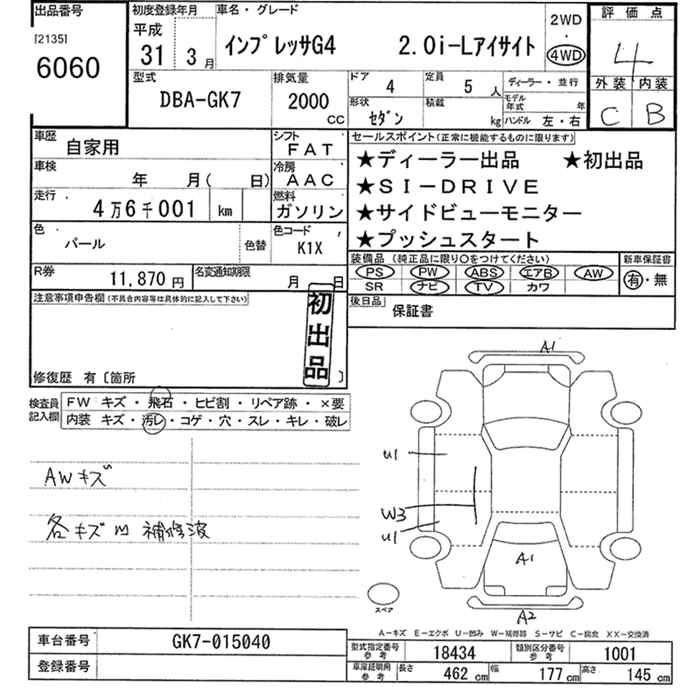 出品番号
[2135]
6060
初度登録年月
平成
31 3月
車名・グレード
インプレッサG4 2.0i-Lアイサイト
2WD
・
4WD
評価点
4
外装 内装
C B
型式
DBA-GK7
排気量
2000
CC
ドア
4
定員
5 人
ディーラー・並行
形状
セダン
積載
kg
モデル年式 年
ハンドル 左・右
車歴
自家用
シフト
FAT
車検
年 月( 日)
冷房
AAC
走行
4万6千001 km
燃料
ガソリン
色
パール
色替
色コード
K1X
R券
11,870円
名変通知期限
月 日
セールスポイント(正常に機能するものに限ります)
★ディーラー出品 ★初出品
★SI-DRIVE
★サイドビューモニター
★プッシュスタート
装備品(純正品に限り○をつけてください)
新車保証書
PS PW ABS エアB AW
SR ナビ TV カワ
有・無
後日品
保証書
注意事項申告欄(不具合内容等は具体的に記入して下さい)
初出品
修復歴 有〔箇所 〕
検査員記入欄
FW キズ・飛石・ヒビ割・リペア跡・×要
内装 キズ・汚レ・コゲ・穴・スレ・キレ・破レ
AWキズ
各キズ凹 補修済
A1
U1
W3
U1
A1
A2
スペア
A-キズ E-エクボ U-凹み W-補修跡 S-サビ C-腐食 XX-交換済
車台番号
GK7-015040
登録番号
型式指定番号
参考
18434
類別区分番号
参考
1001
車庫証明用
参考
長さ 462 cm 幅 177 cm 高さ 145 cm